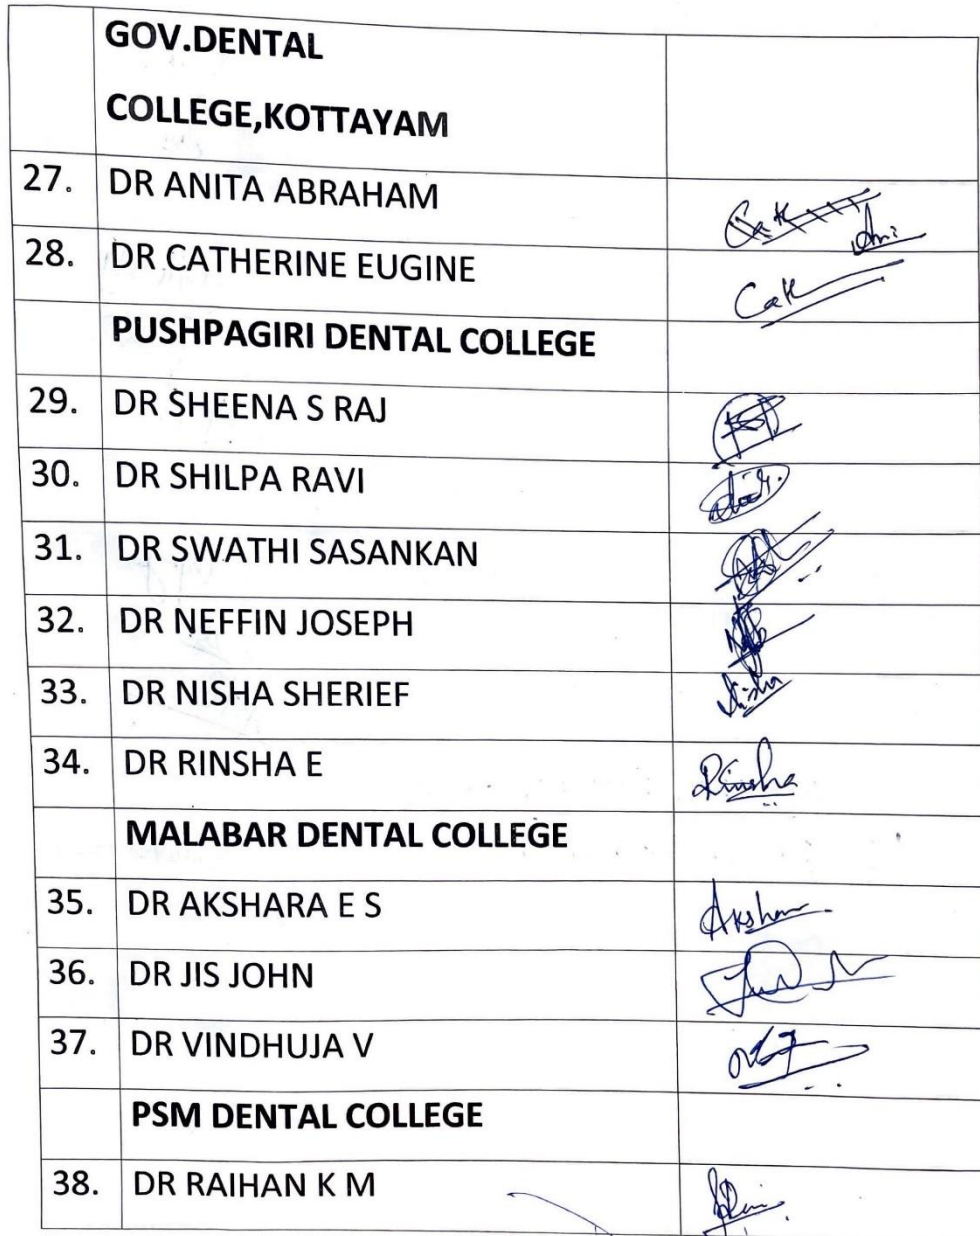 GOV.DENTAL
COLLEGE,KOTTAYAM
27. DR ANITA ABRAHAM
28. DR CATHERINE EUGINE
PUSHPAGIRI DENTAL COLLEGE
29. DR SHEENA S RAJ
30. DR SHILPA RAVI
31. DR SWATHI SASANKAN
32. DR NEFFIN JOSEPH
33. DR NISHA SHERIEF Nisha
34. DR RINSHA E Rinsha
MALABAR DENTAL COLLEGE
35. DR AKSHARA E S
36. DR JIS JOHN
37. DR VINDHUJA V
PSM DENTAL COLLEGE
38. DR RAIHAN K M